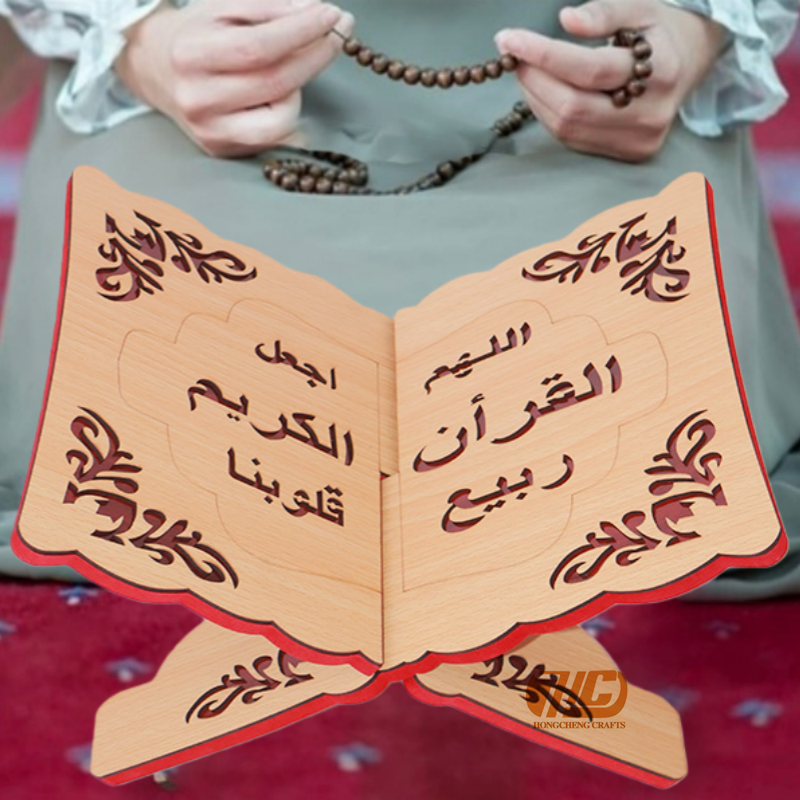 اللهم اجعل
القرأن الكريم
ربيع قلوبنا
HC
HONGCHENG CRAFTS